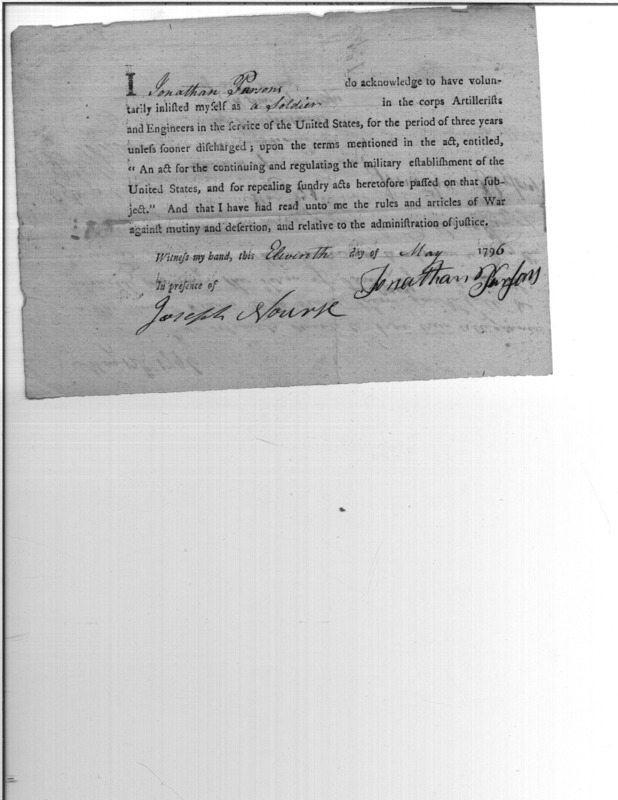 I Jonathan Parsons do acknowledge to have volun-
tarily inlisted myſelf as a Soldier in the corps Artilleriſts
and Engineers in the ſervice of the United States, for the period of three years
unleſs ſooner diſcharged; upon the terms mentioned in the act, entitled,
“ An act for the continuing and regulating the military eſtabliſhment of the
United States, and for repealing ſundry acts heretofore paſſed on that ſub-
ject.” And that I have had read unto me the rules and articles of War
againſt mutiny and deſertion, and relative to the adminiſtration of juſtice.
Witneſs my hand, this Elevinth day of May 1796
In preſence of Jonathan Parſons
Joseph Nourse